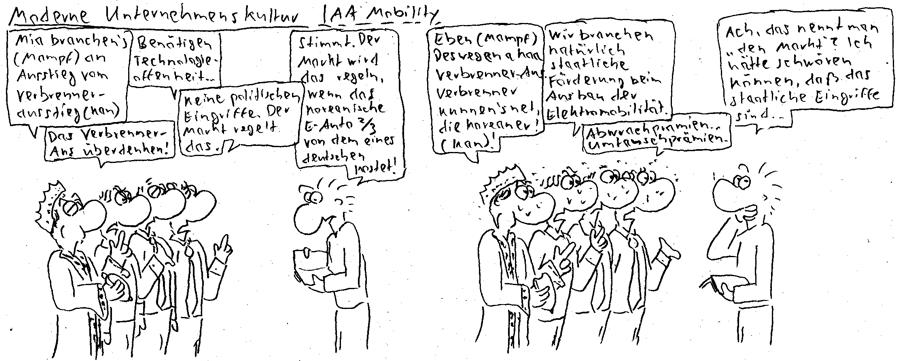 Moderne Unternehmenskultur IAA Mobility
Mia branchen's
(Mampf) an
Ausstieg vom
Verbrenner-
ausstieg (Kau)
Das Verbrenner-
Aus überdenken!
Benötigen
Technologie-
offenheit...
Keine politischen
Eingriffe. Der
Markt regelt
das.
Stimmt. Der
Markt wird
das regeln,
wenn das
koreanische
E-Auto 2/3
von dem eines
deutschen
kostet!
Eben (Mampf)
Deswegen a haa
Verbrenner-Aus.
Verbrenner
kunnen's net,
die Koreaner!
(Kau)!
Wir brauchen
natürlich
staatliche
Förderung beim
Ausbau der
Elektromobilität.
Abwrackprämien..
Umtauschprämien..
Ach, das nennt man
"den Markt"? Ich
hätte schwören
können, daß das
staatliche Eingriffe
sind...